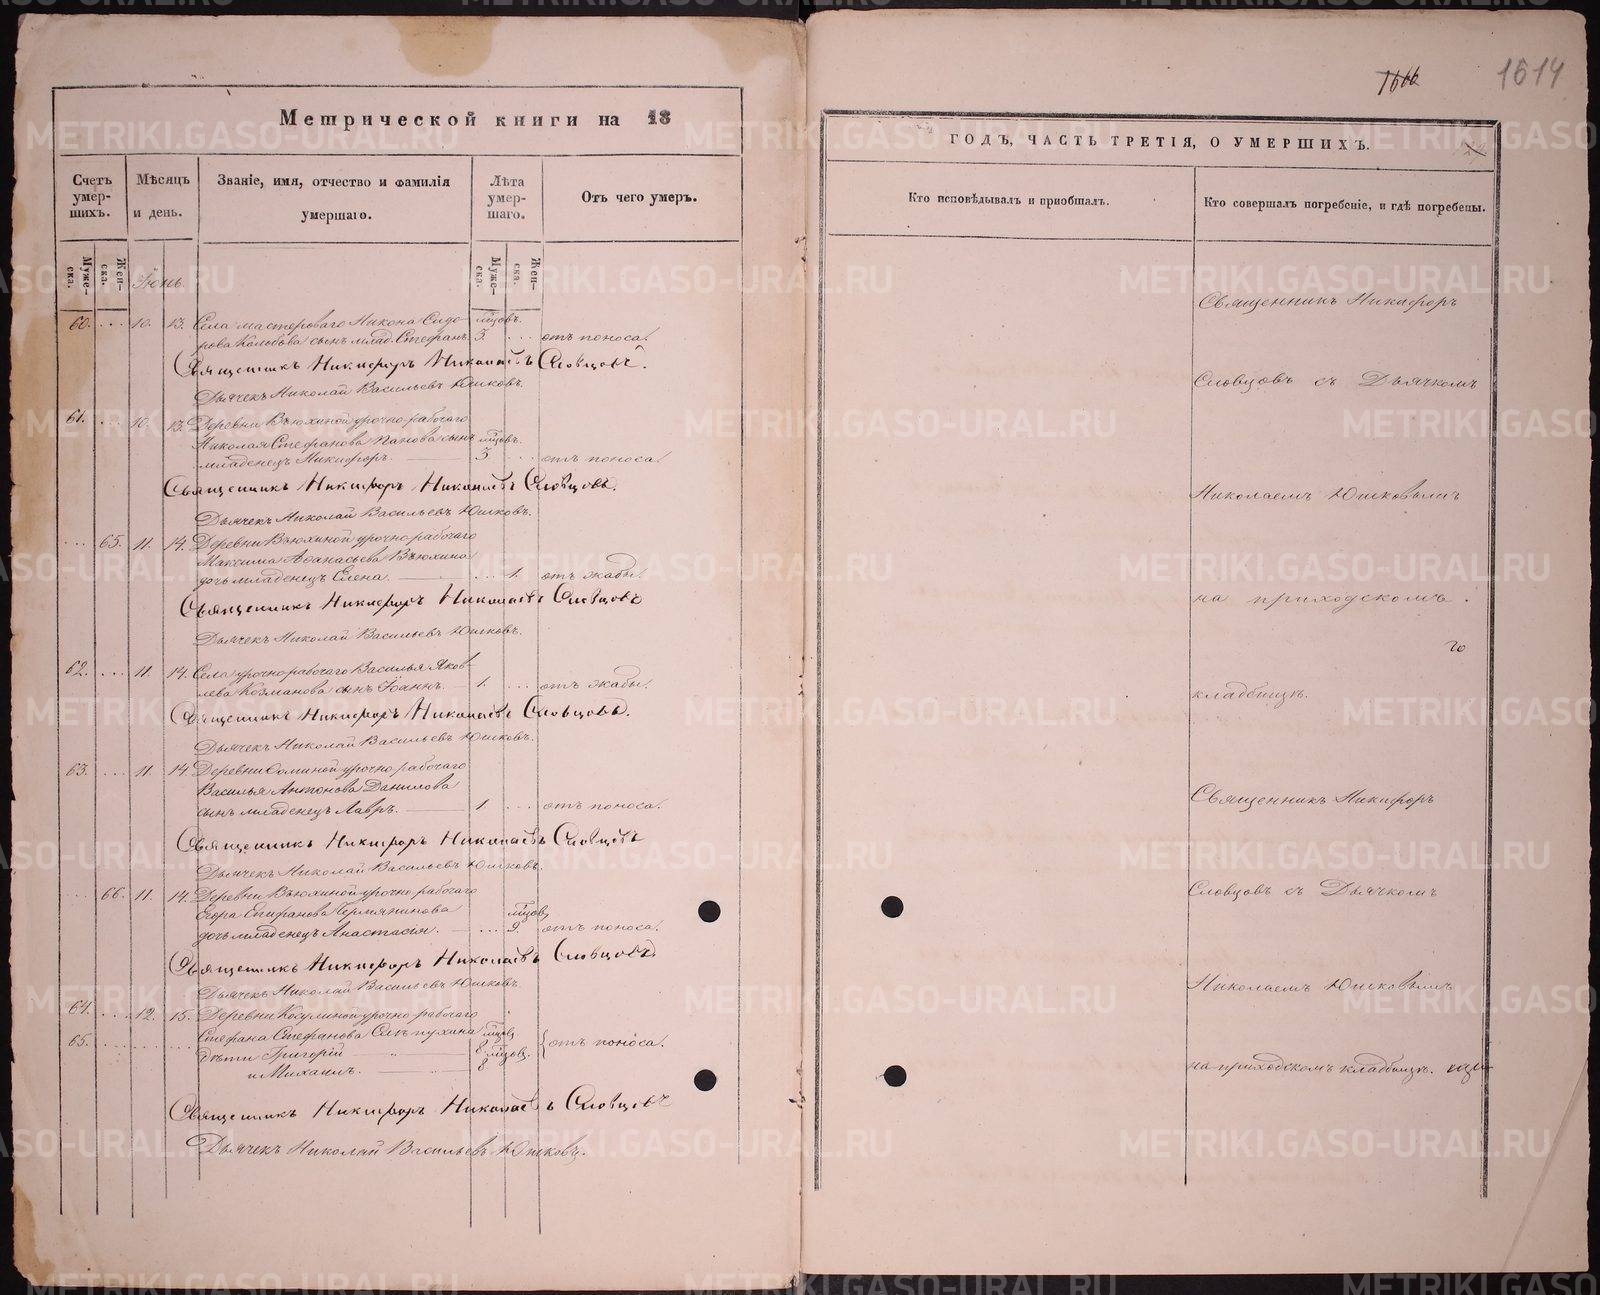 Метрической книги на 18
Счетъ умер- шихъ.
Мѣсяцъ и день.
Званіе, имя, отчество и фамилія умершаго.
Лѣта умер- шаго.
Отъ чего умеръ.
Муже- ска.
Жен- ска.
Муже- ска.
Жен- ска.
Іюнь.
60. ... 10. 13. Села мастероваго Никона Сидо- мцовъ.
рова сынъ млад. Стефанъ 3. ... отъ поноса.
Священникъ Никифоръ Николаевъ Словцовъ.
Дьячекъ Николай Васильевъ Юшковъ.
61. ... 10. 13. Деревни Вьюхиной урочно-рабочаго
Николая Стефанова Панова сынъ мцовъ.
младенецъ Никифоръ. 3 ... отъ поноса.
Священникъ Никифоръ Николаевъ Словцовъ.
Дьячекъ Николай Васильевъ Юшковъ.
... 65. 11. 14. Деревни Вьюхиной урочно-рабочаго
Максима Аѳанасьева Вьюхина
дочь младенецъ Елена. ... 1. отъ жабы.
Священникъ Никифоръ Николаевъ Словцовъ
Дьячекъ Николай Васильевъ Юшковъ.
62. ... 11. 14. Села урочнорабочаго Василья Яков-
лева Козманова сынъ Іоаннъ. 1. ... отъ жабы.
Священникъ Никифоръ Николаевъ Словцовъ.
Дьячекъ Николай Васильевъ Юшковъ.
63. ... 11. 14. Деревни Ѳоминой урочно-рабочаго
Василья Антонова Данилова
сынъ младенецъ Лавръ. 1. ... отъ поноса.
Священникъ Никифоръ Николаевъ Словцовъ
Дьячекъ Николай Васильевъ Юшковъ.
... 66. 11. 14. Деревни Вьюхиной урочно-рабочаго
Егора Епифанова мцовъ
дочь младенецъ Анастасія. ... 9. отъ поноса.
Священникъ Никифоръ Николаевъ Словцовъ
Дьячекъ Николай Васильевъ Юшковъ.
64. ... 12. 15. Деревни Косулиной урочно-рабочаго
65. Стефана Стефанова мцовъ
дѣти Григорій 8 мцовъ. отъ поноса.
и Михаилъ. 8
Священникъ Никифоръ Николаевъ Словцовъ
Дьячекъ Николай Васильевъ Юшковъ.
1614
ГОДЪ, ЧАСТЬ ТРЕТІЯ, О УМЕРШИХЪ.
Кто исповѣдывалъ и пріобщалъ.
Кто совершалъ погребеніе, и гдѣ погребены.
Священникъ Никифоръ
Словцовъ съ Дьячкомъ
Николаемъ Юшковымъ
на приходскомъ
кладбищѣ.
Священникъ Никифоръ
Словцовъ съ Дьячкомъ
Николаемъ Юшковымъ
на приходскомъ кладбищѣ.
METRIKI.GASO-URAL.RU